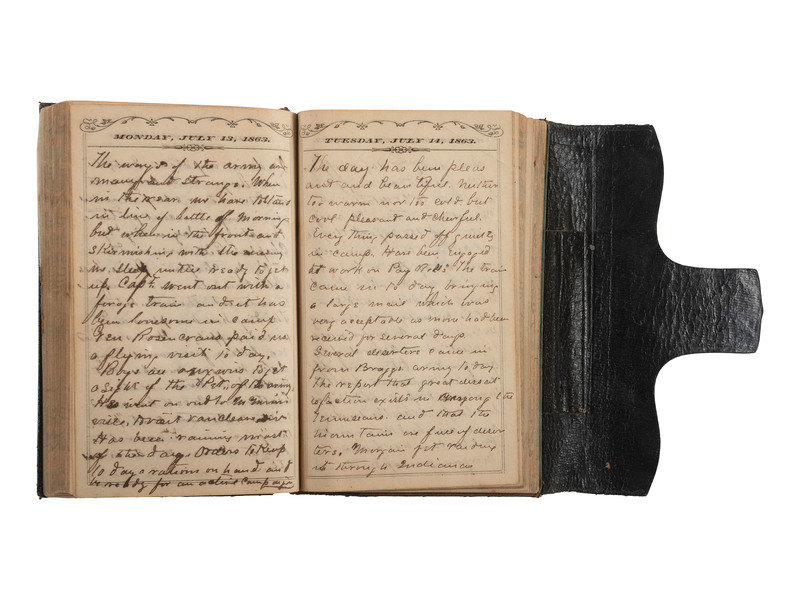 MONDAY, JULY 13, 1863.
The ways of the army are
many and strange. When
in the rear we have to stand
in line of battle at morning
but when in the front and
skirmishing with the enemy
we sleep until ready to get
up. Capt. went out with a
forage train and it has
been lonesome in camp
Gen Rosencrans paid us
a flying visit to day.
Boys are anxious to get
a sight of the "Pet" of the army
He went on out to
visit
Has been raining most
of the day. Orders to keep
10 days rations on hand and
be ready for an active campaign
TUESDAY, JULY 14, 1863.
The day has been pleas
ant and beautiful. Neither
too warm nor too cold but
cool pleasant and cheerful.
Every thing passed off quietly
in camp. Have been engaged
at work on Pay Rolls The train
came in to day bringing
a large mail which was
very acceptable as none had been
received for several days.
Several deserters came in
from Braggs army to day
The report that great dissat
isfaction exists among the
Tennesseans. and that the
mountains are full of deser
ters. Morgan yet raiding
it through Indiana